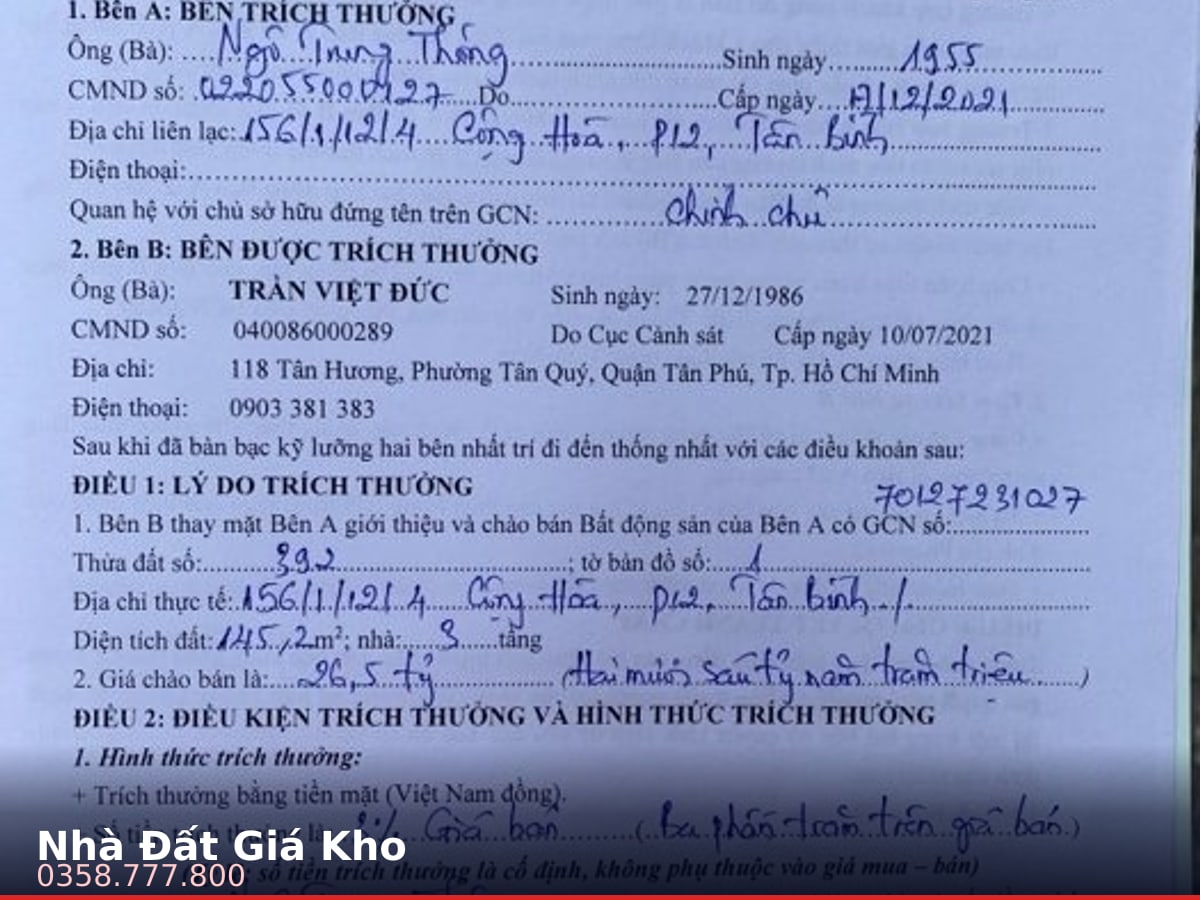 1. Bên A: BÊN TRÍCH THƯỞNG
Ông (Bà): ....Ngô Trung Thông..............................Sinh ngày.........1955................
CMND số: .022055000427.....Do............................Cấp ngày....17/12/2021..............
Địa chỉ liên lạc:.156/1/12/4....Cộng Hoà., P12, Tân Bình..............................
Điện thoại:..........................................................................................
Quan hệ với chủ sở hữu đứng tên trên GCN: ................chính chủ..............................
2. Bên B: BÊN ĐƯỢC TRÍCH THƯỞNG
Ông (Bà): TRẦN VIỆT ĐỨC Sinh ngày: 27/12/1986
CMND số: 040086000289 Do Cục Cảnh sát Cấp ngày 10/07/2021
Địa chỉ: 118 Tân Hương, Phường Tân Quý, Quận Tân Phú, Tp. Hồ Chí Minh
Điện thoại: 0903 381 383
Sau khi đã bàn bạc kỹ lưỡng hai bên nhất trí đi đến thống nhất với các điều khoản sau:
ĐIỀU 1: LÝ DO TRÍCH THƯỞNG
1. Bên B thay mặt Bên A giới thiệu và chào bán Bất động sản của Bên A có GCN số: 70127231027
Thửa đất số:..........392..............................; tờ bản đồ số:.....1..............................
Địa chỉ thực tế:.156/1/12/4 Cộng Hoà, P12, Tân Bình./..............................
Diện tích đất:145,2m²; nhà:.....3......tầng
2. Giá chào bán là:....26,5 tỷ................(Hai mươi sáu tỷ năm trăm triệu.......)
ĐIỀU 2: ĐIỀU KIỆN TRÍCH THƯỞNG VÀ HÌNH THỨC TRÍCH THƯỞNG
1. Hình thức trích thưởng:
+ Trích thưởng bằng tiền mặt (Việt Nam đồng).
3% Giá bán..........(.Ba phần trăm trên giá bán.)
Nhà Đất Giá Kho
số tiền trích thưởng là cố định, không phụ thuộc vào giá mua – bán)
0358.777.800